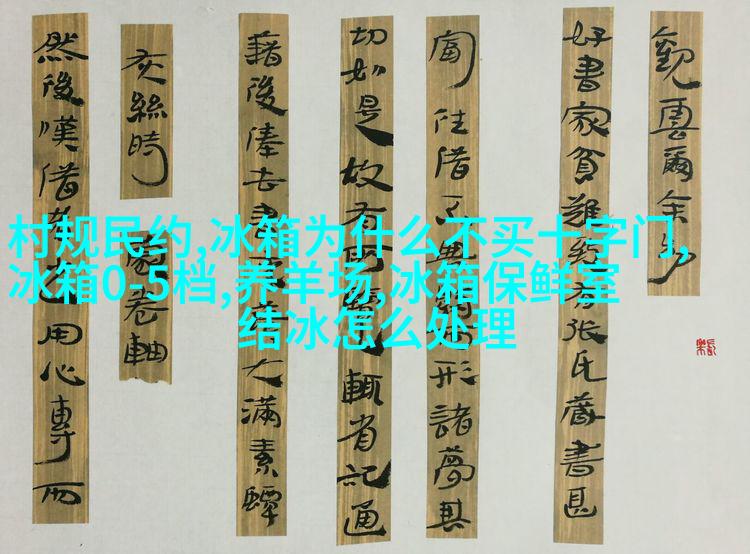 觀雲爾余少
好書家貧難
張氏藏書甚
富往借不與
形諸夢其
切如是故有
輒省記通
藉後俸去書
大滿素蟫
灰絲時
蒙卷軸
然後嘆借
用心專而
村规民约,冰箱为什么不买十字门,
冰箱0-5档,养羊场,冰箱保鲜室
结冰怎么处理